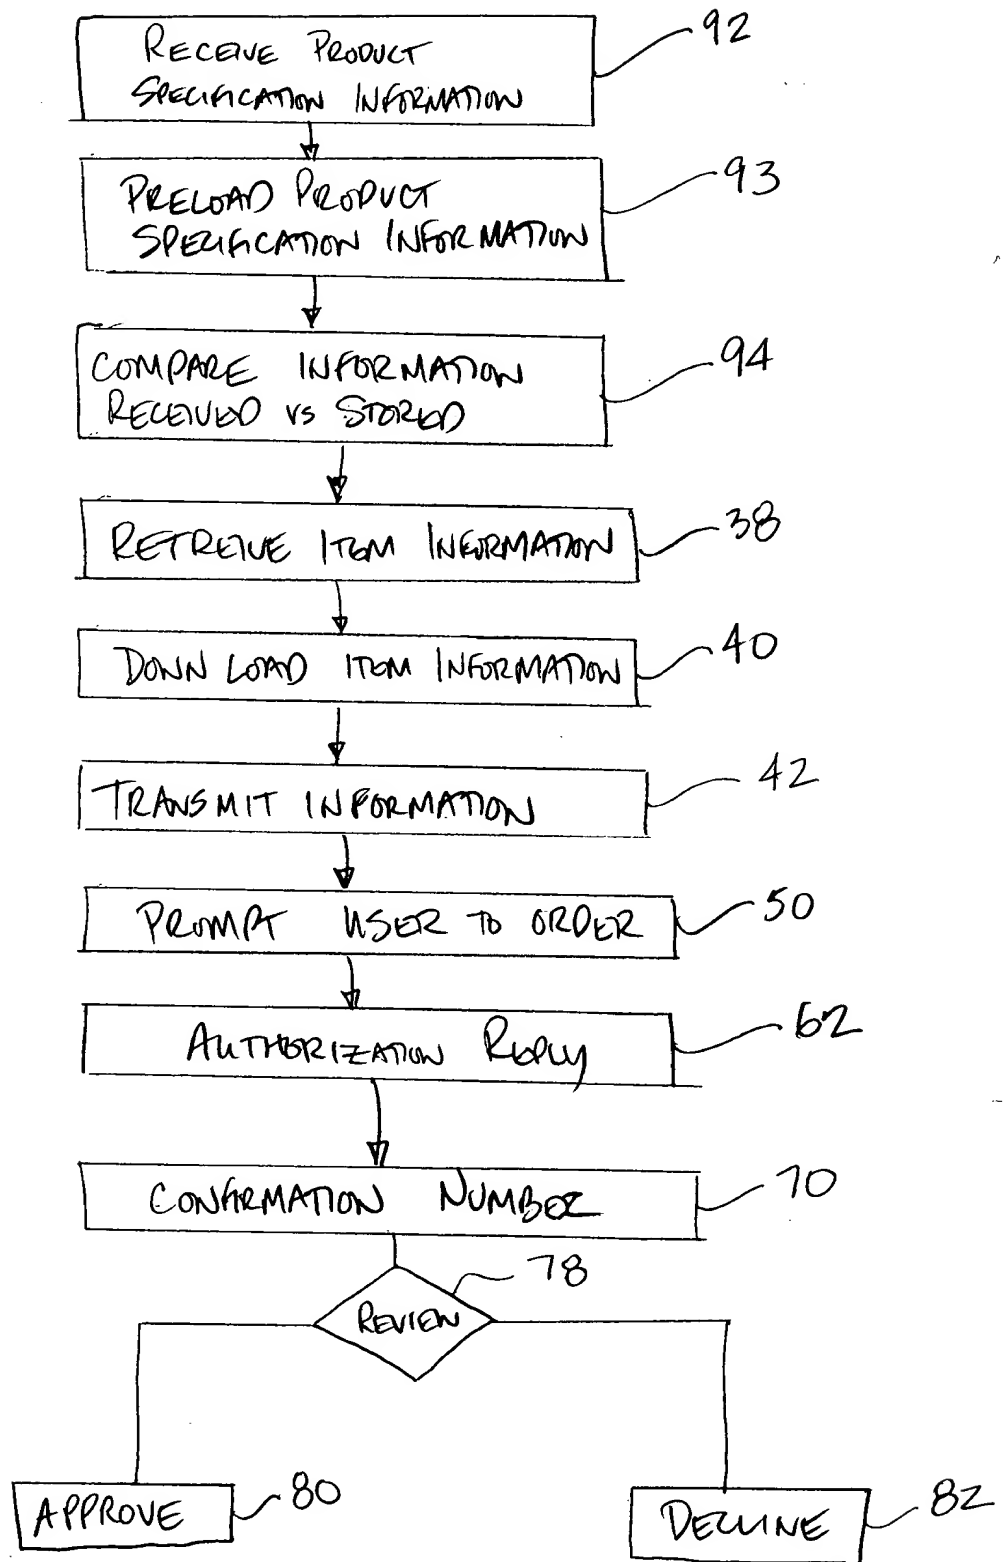 RECEIVE PRODUCT
SPECIFICATION INFORMATION
92
PRELOAD PRODUCT
SPECIFICATION INFORMATION
93
COMPARE INFORMATION
RECEIVED VS STORED
94
RETREIVE ITEM INFORMATION
38
DOWN LOAD ITEM INFORMATION
40
TRANSMIT INFORMATION
42
PROMPT USER TO ORDER
50
AUTHORIZATION REPLY
62
CONFIRMATION NUMBER
70
REVIEW
78
APPROVE
80
DECLINE
82